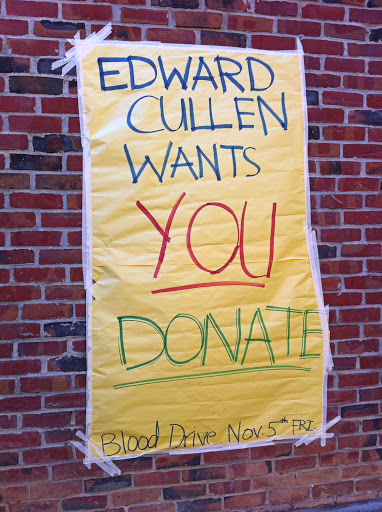 EDWARD
CULLEN
WANTS
YOU
DONATE
Blood Drive Nov. 5th FRI